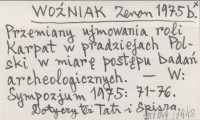 WOŹNIAK Zenon 1975 b.
Przemiany ujmowania roli
Karpat w pradziejach Pol-
ski w miarę postępu badań
archeologicznych. — W:
Sympozjum 1975: 71-76.
Dotyczy też Tatr i Spisza.